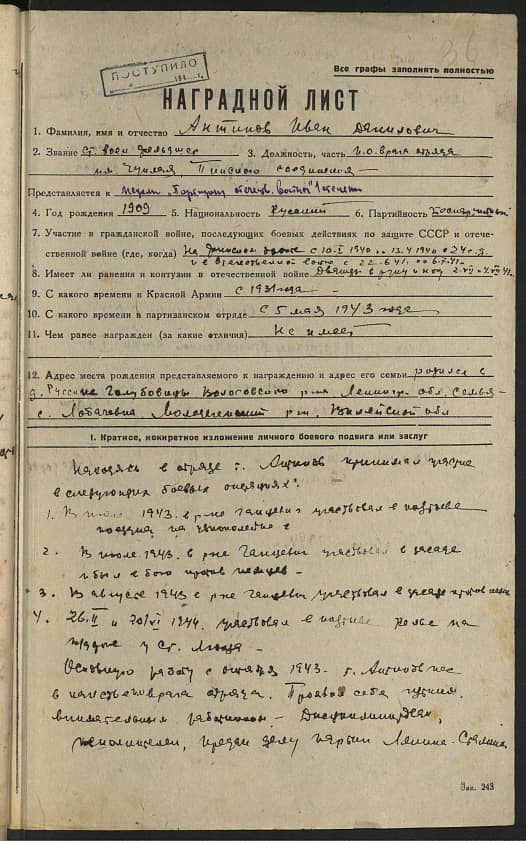 36
ПОСТУПИЛО
Все графы заполнять полностью
НАГРАДНОЙ ЛИСТ
1. Фамилия, имя и отчество Антипов Иван Данилович
2. Звание Ст. воен фельдшер 3. Должность, часть и.о. врача отряда
им. Чапаева, Пинского соединения
Представляется к медали "Партизану отечеств. войны" I степени
4. Год рождения 1909 5. Национальность Русский 6. Партийность Беспартийный
7. Участие в гражданской войне, последующих боевых действиях по защите СССР и отече-
ственной войне (где, когда) На финском фронте с 10.I 1940 по 13.4 1940
и в Отечественной войне с 22.6.41. по 6.7.41 г.
8. Имеет ли ранения и контузии в отечественной войне Дважды в руку и ногу
9. С какого времени в Красной Армии с 1931 года
10. С какого времени в партизанском отряде с 5 мая 1943 года
11. Чем ранее награжден (за какие отличия) Не имеет
12. Адрес места рождения представляемого к награждению и адрес его семьи родился в
д. Русские Голубовицы Волосовского р-на Ленингр. обл. семья-
с. Молодеченский р-н, Вилейской обл
I. Краткое, конкретное изложение личного боевого подвига или заслуг
Находясь в отряде т. Антипов принимал участие
в следующих боевых операциях:
1. В июле 1943. в р-не Ганцевич участвовал в подрыве
поезда на
2. В июле 1943. в р-не Ганцевич участвовал в засаде
и был в бою против немцев -
3. В августе 1943 в р-не Ганцевич участвовал в засаде против
4. 1944. участвовал в подрыве рельс на
у ст.
Основную работу с 1943. т. Антипов нес
в качестве врача отряда. Проявил себя
внимательным работником - Дисциплинирован,
исполнителен, предан делу партии Ленина-Сталина
Зак. 243